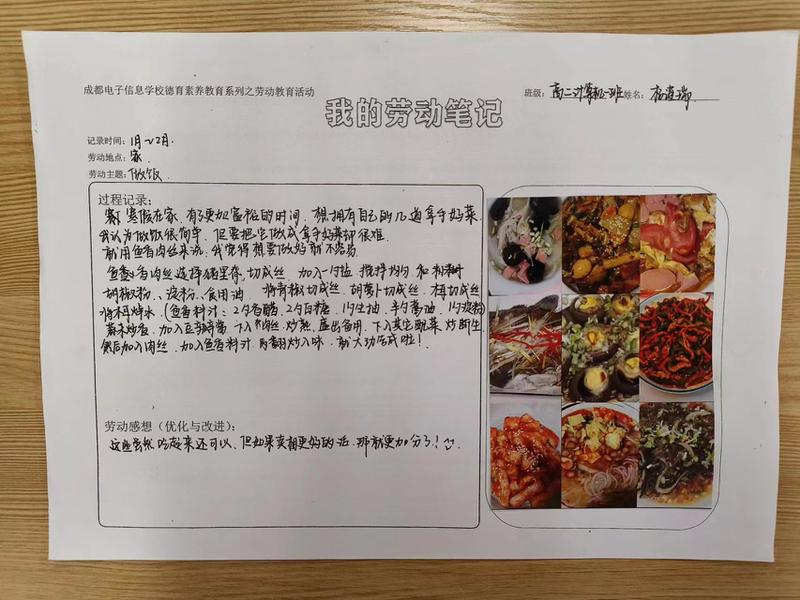 成都电子信息学校德育素养教育系列之劳动教育活动
我的劳动笔记
班级：高二计算机一班 姓名：
记录时间：1月~2月.
劳动地点：家.
劳动主题：做饭
过程记录：
寒假在家，有了更加富裕的时间，想拥有自己的几道拿手好菜.
我认为做饭很简单，但要把它做成拿手好菜却很难.
就用鱼香肉丝来说：我觉得想要做好就不容易.
鱼香肉丝选择猪里脊，切成丝，加入 搅拌均匀
胡椒粉、淀粉、食用油，将青椒切成丝，胡萝卜切成丝，
焯水（鱼香料汁：2勺香醋，2勺白糖，1勺生抽，半勺酱油，1勺淀粉）
蒜末炒香，加入豆瓣酱，下入肉丝，炒熟，盛出备用，下入其它配菜，炒断生
然后加入肉丝，加入鱼香料汁，翻炒入味，就大功告成啦！
劳动感想（优化与改进）：
这些虽然吃起来还可以，但如果卖相更好的话，那就更加分了！